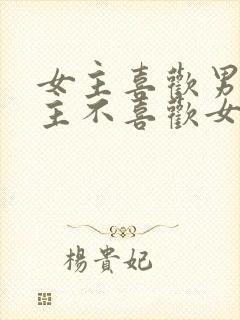 女主喜歡男
主不喜歡女
楊貴妃